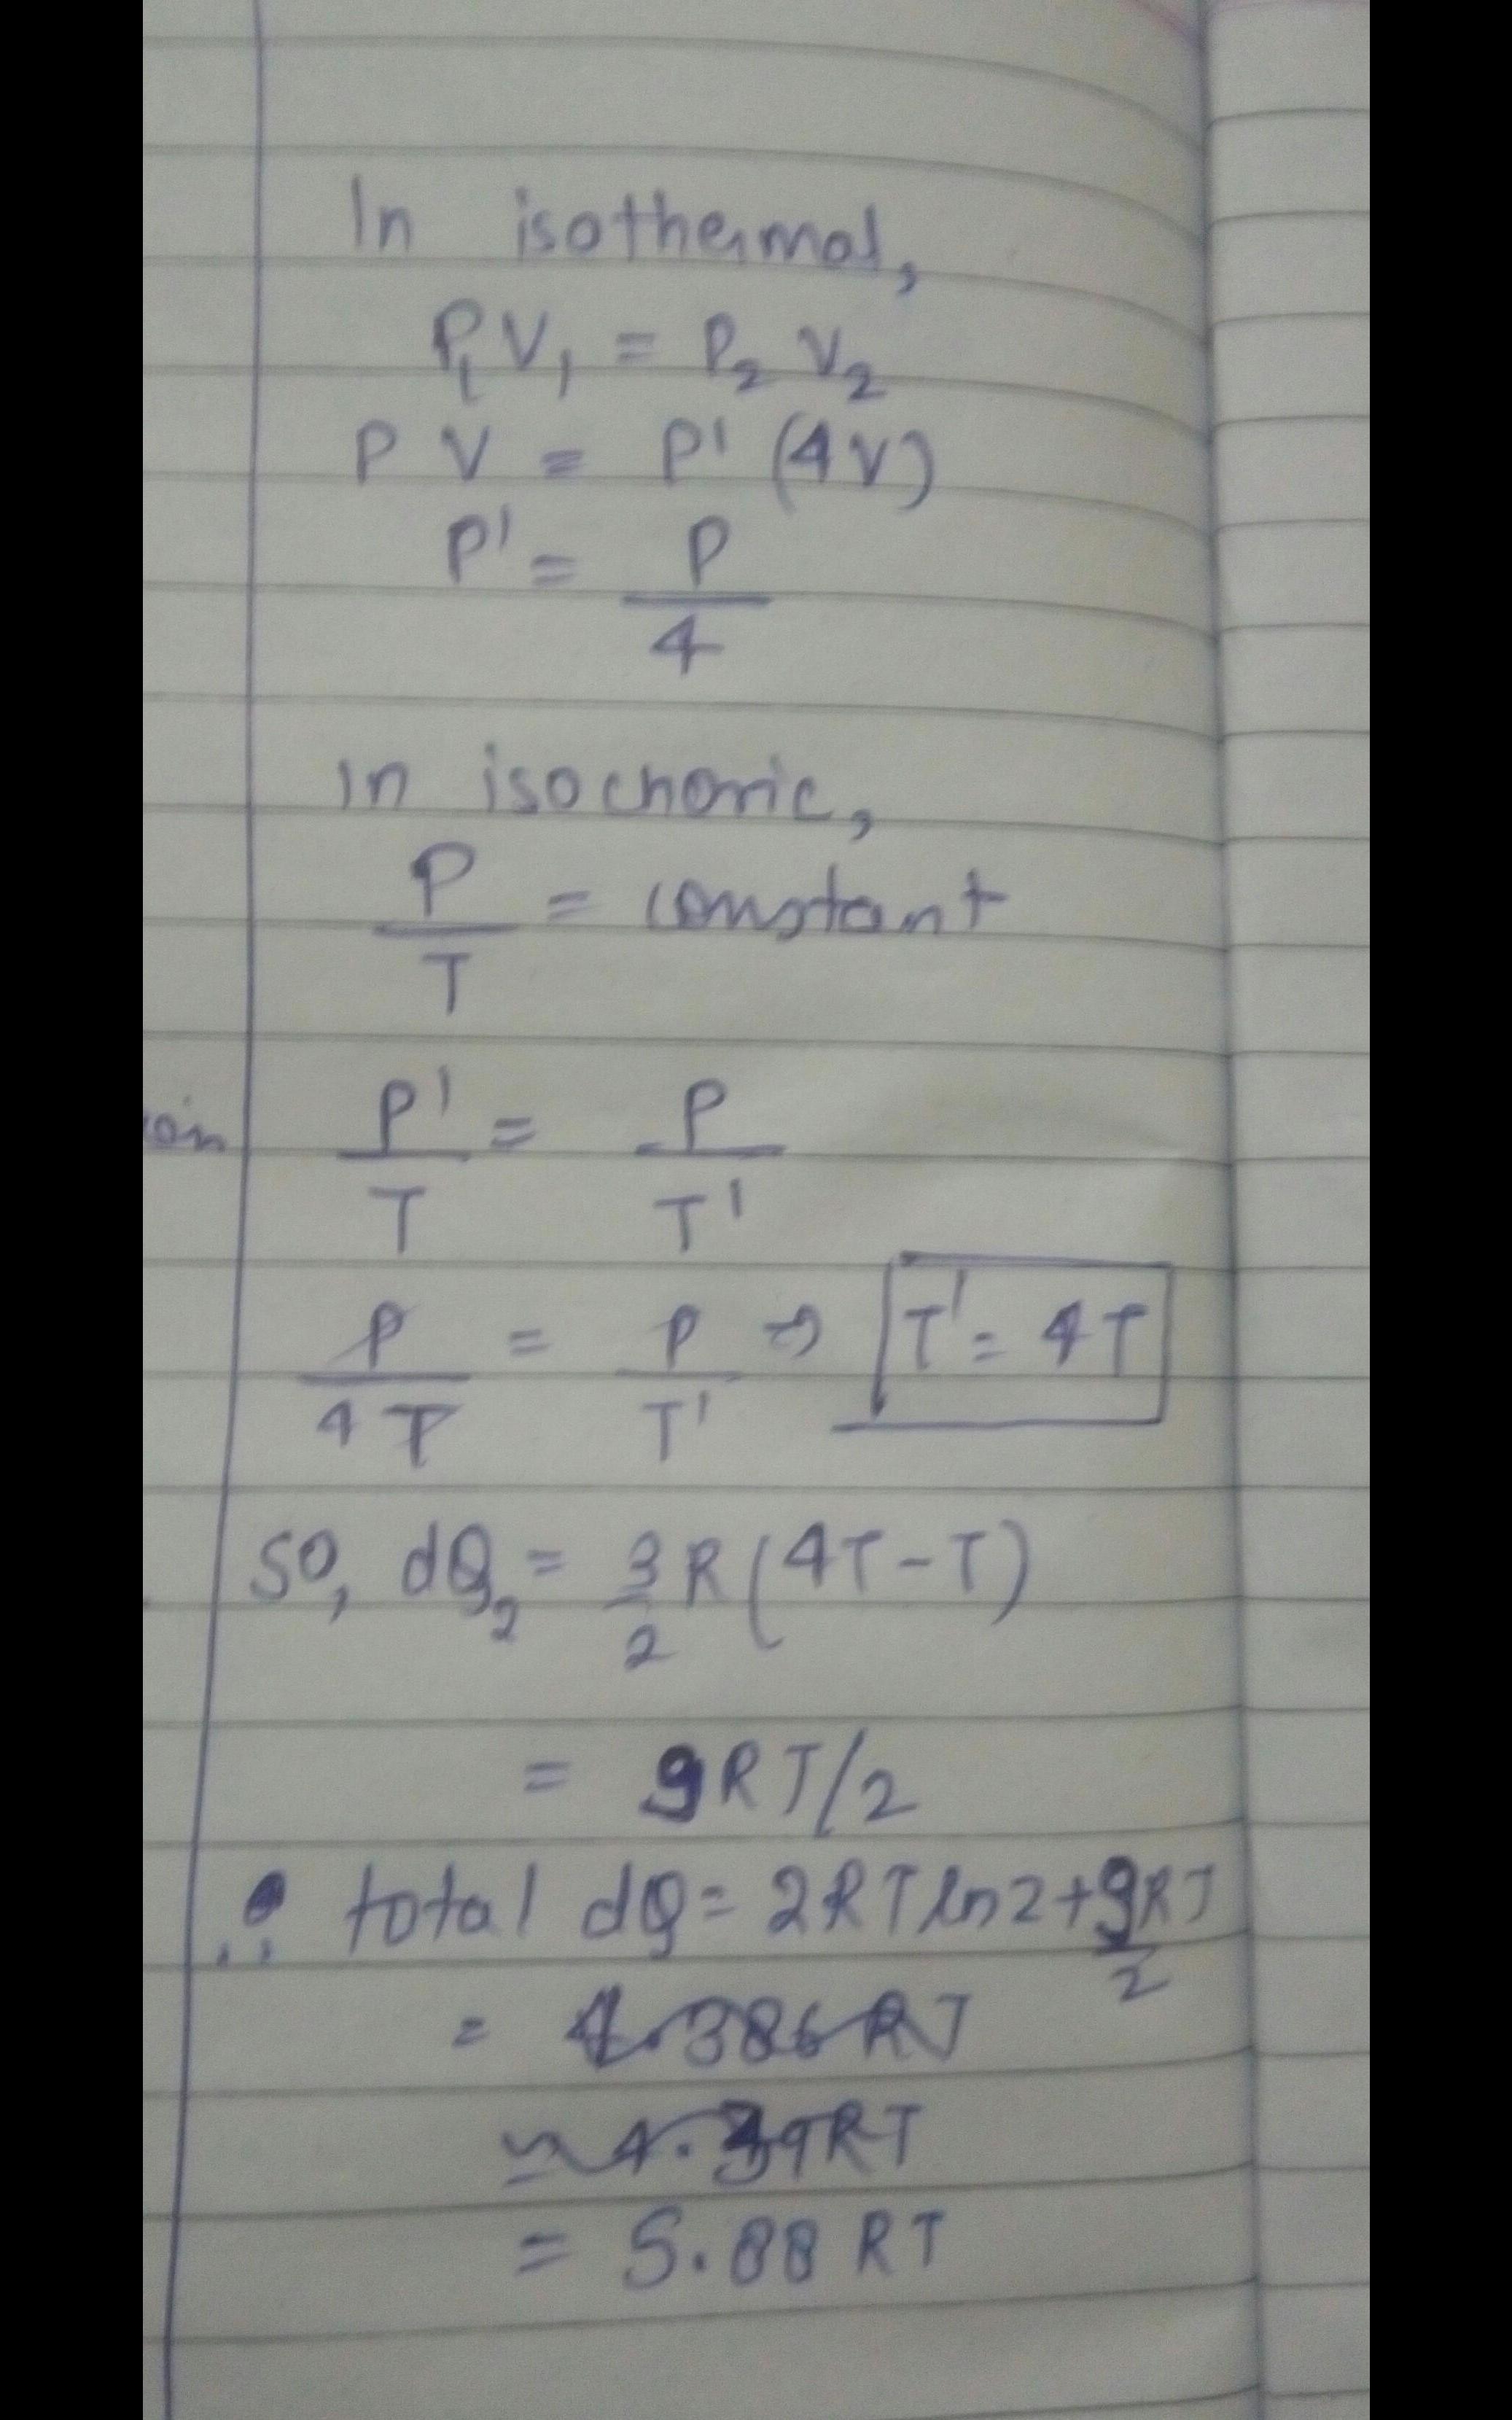 In isothermal,
P₁V₁ = P₂ V₂
P V = P' (4V)
P' = P/4
in isochoric,
P/T = constant
P'/T = P/T'
P/4T = P/T' ⇒ T' = 4T
SO, dQ₂ = 3/2 R (4T - T)
= 9RT/2
∴ total dQ = 2RT ln2 + 9RT/2
= 4.386RT
≃ 4.39RT
= 5.88 RT